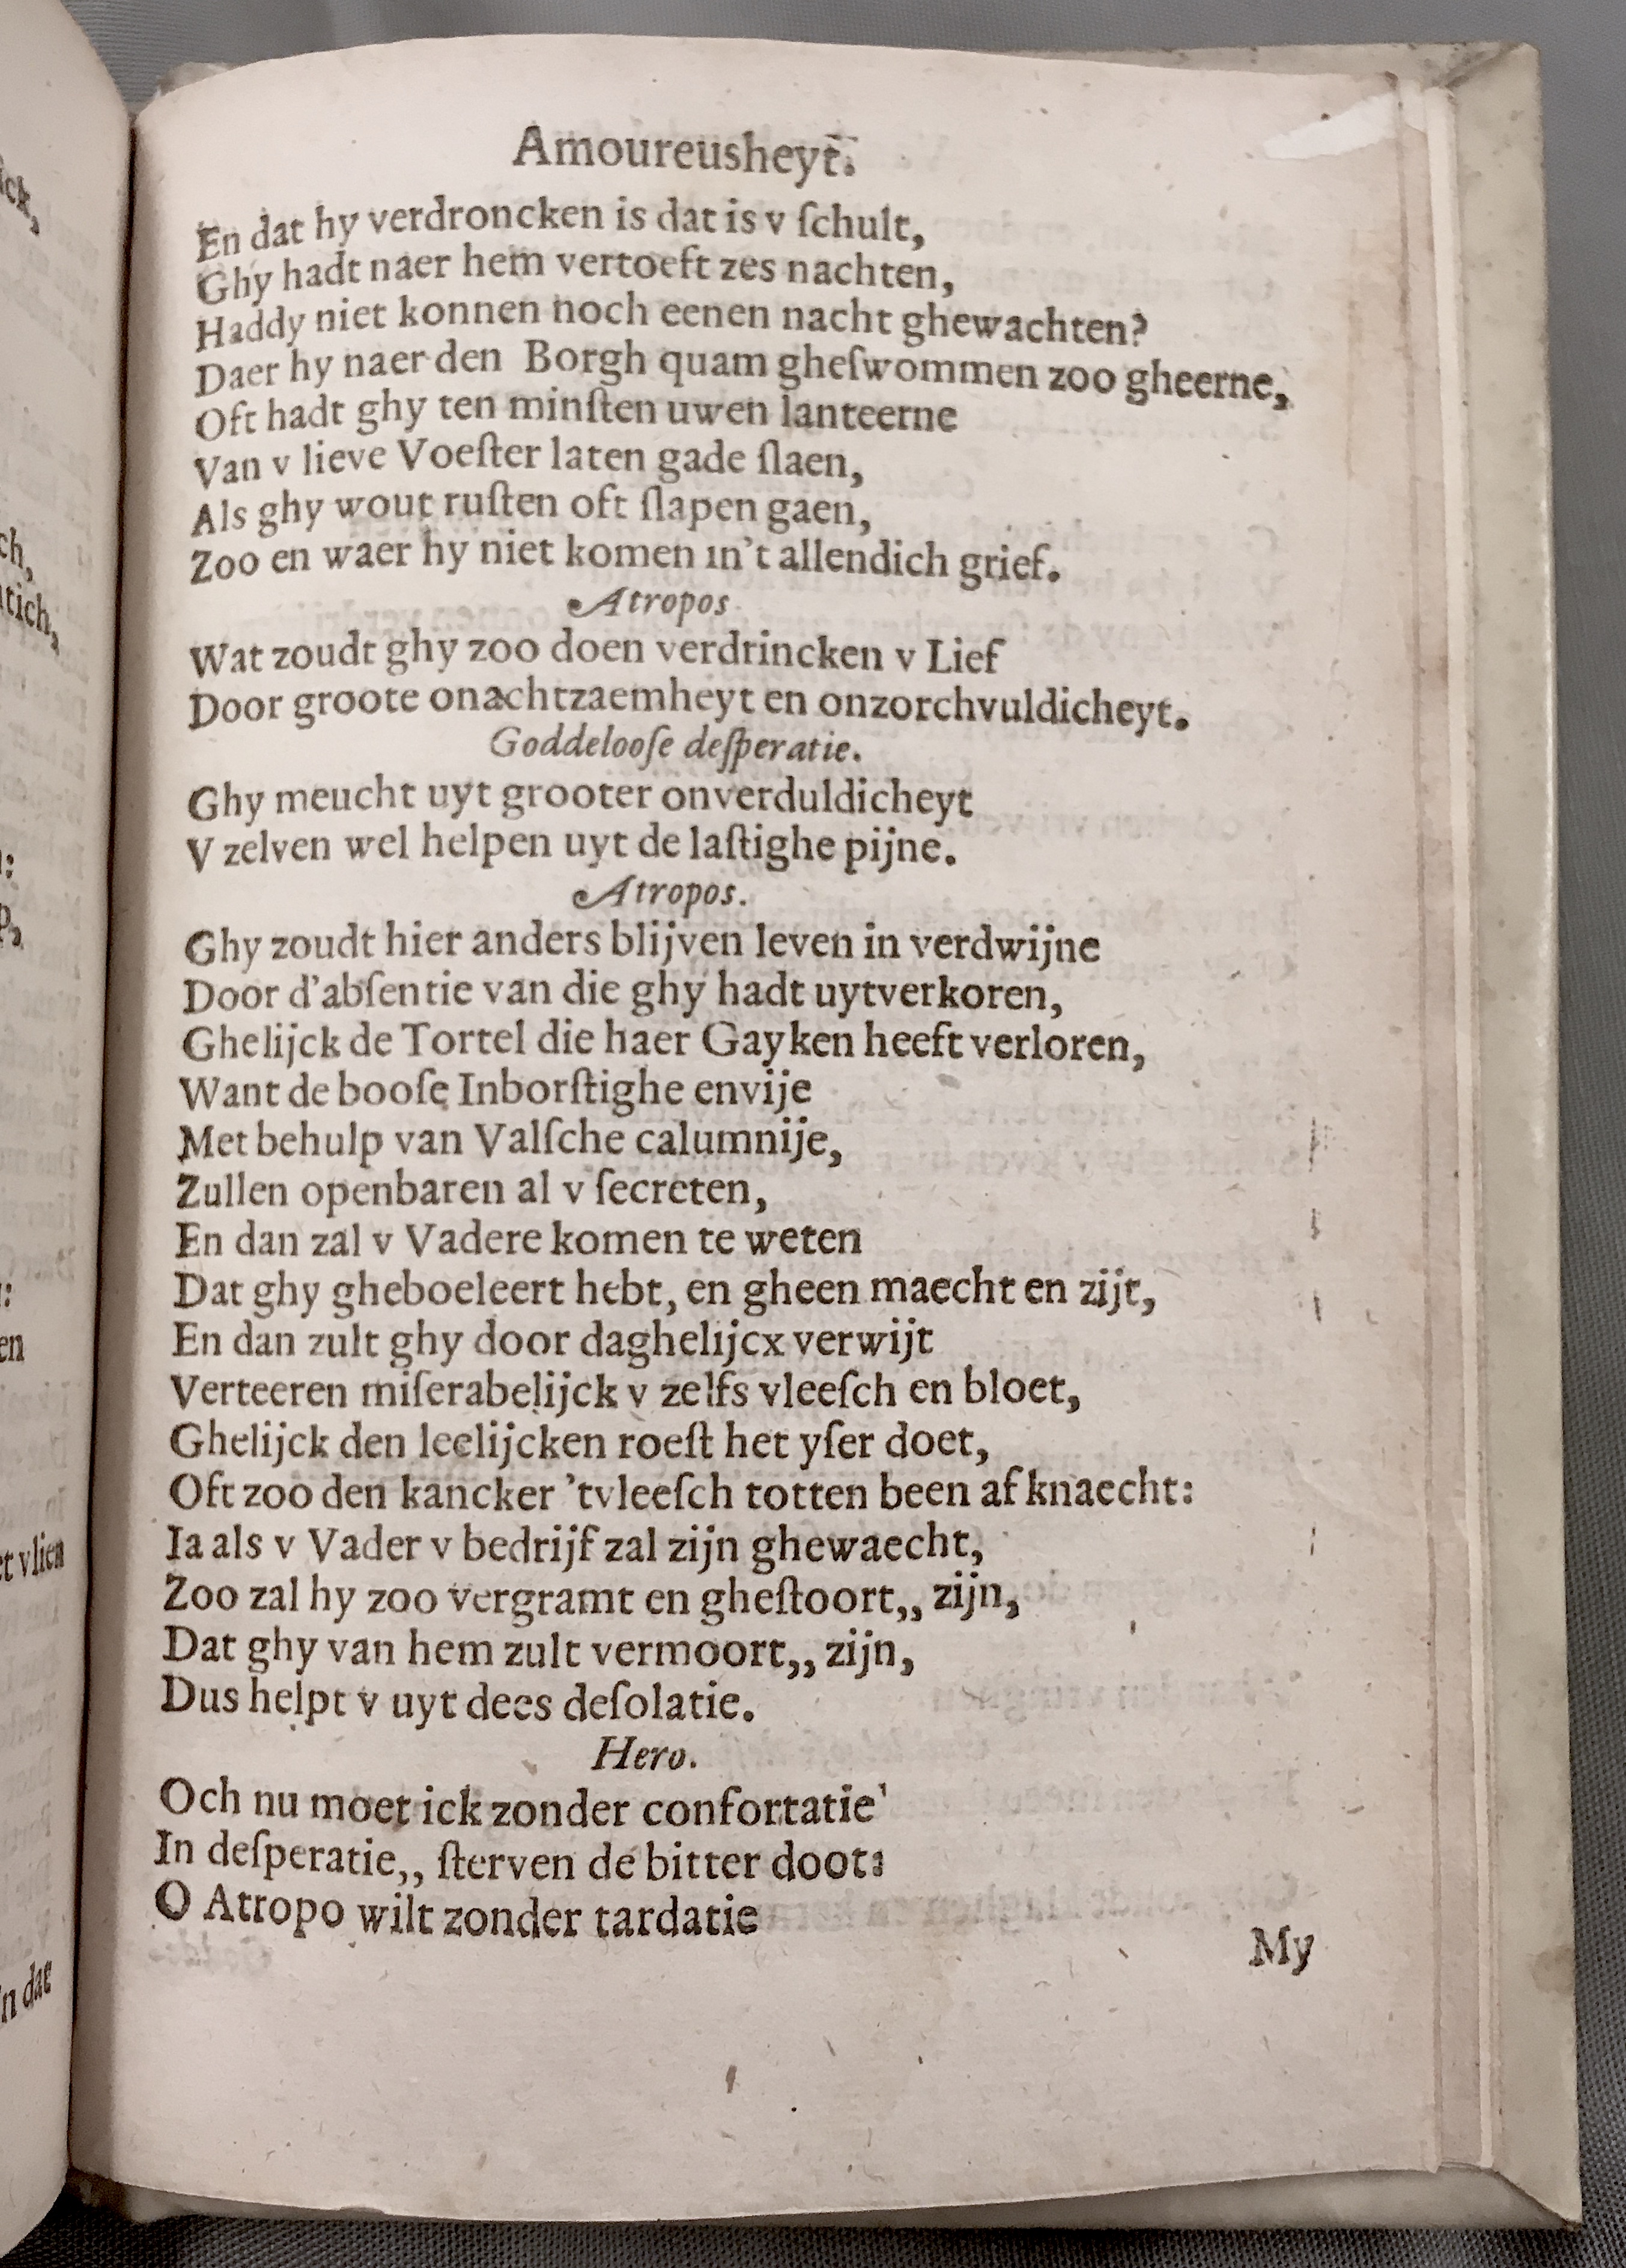 Amoureusheyt.
En dat hy verdroncken is dat is v ſchult,
Ghy hadt naer hem vertoeft zes nachten,
Haddy niet konnen noch eenen nacht ghewachten?
Daer hy naer den Borgh quam gheſwommen zoo gheerne,
Oft hadt ghy ten minſten uwen lanteerne
Van v lieve Voeſter laten gade ſlaen,
Als ghy wout ruſten oft ſlapen gaen,
Zoo en waer hy niet komen in't allendich grief.
Atropos
Wat zoudt ghy zoo doen verdrincken v Lief
Door groote onachtzaemheyt en onzorchvuldicheyt.
Goddelooſe deſperatie.
Ghy meucht uyt grooter onverduldicheyt
V zelven wel helpen uyt de laſtighe pijne.
Atropos.
Ghy zoudt hier anders blijven leven in verdwijne
Door d'abſentie van die ghy hadt uytverkoren,
Ghelijck de Tortel die haer Gayken heeft verloren,
Want de booſe Inborſtighe envije
Met behulp van Valſche calumnije,
Zullen openbaren al v ſecreten,
En dan zal v Vadere komen te weten
Dat ghy gheboeleert hebt, en gheen maecht en zijt,
En dan zult ghy door daghelijcx verwijt
Verteeren miſerabelijck v zelfs vleeſch en bloet,
Ghelijck den leelijcken roeſt het yſer doet,
Oft zoo den kancker 'tvleeſch totten been af knaecht:
Ia als v Vader v bedrijf zal zijn ghewaecht,
Zoo zal hy zoo vergramt en gheſtoort,, zijn,
Dat ghy van hem zult vermoort,, zijn,
Dus helpt v uyt dees deſolatie.
Hero.
Och nu moet ick zonder confortatie'
In deſperatie,, ſterven de bitter doot:
O Atropo wilt zonder tardatie
My
ick,
ch,
tich,
:
p,
:
en
et vlien
n dat